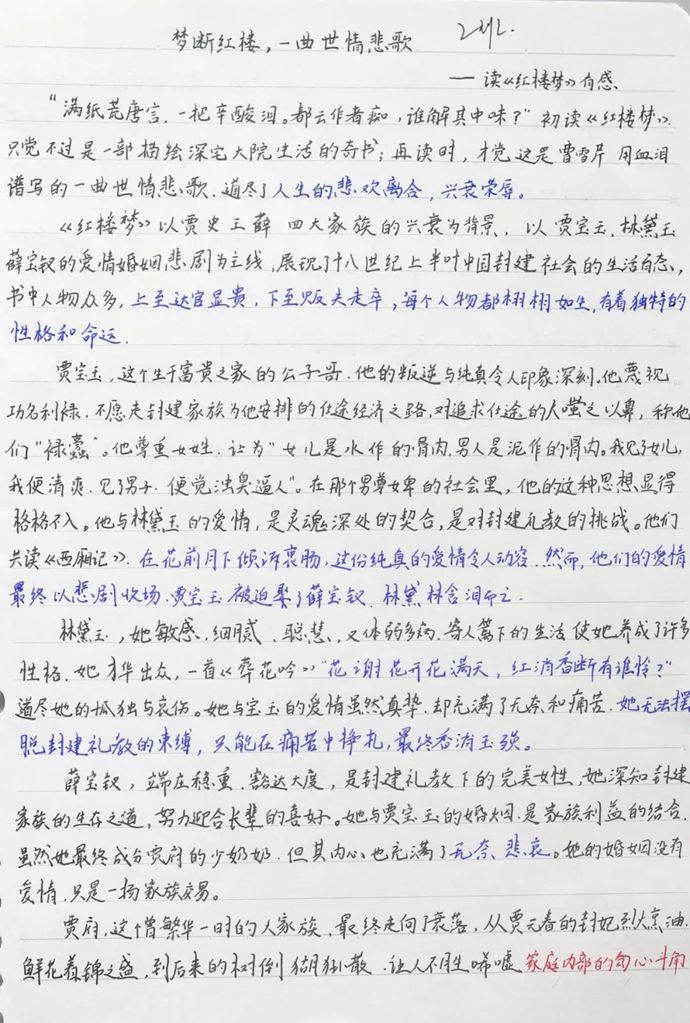 梦断红楼，一曲世情悲歌
——读《红楼梦》有感
“满纸荒唐言，一把辛酸泪。都云作者痴，谁解其中味？”初读《红楼梦》，
只觉不过是一部描绘深宅大院生活的奇书；再读时，才觉这是曹雪芹用血泪
谱写的一曲世情悲歌，道尽了人生的悲欢离合，兴衰荣辱。
《红楼梦》以贾史王薛四大家族的兴衰为背景，以贾宝玉、林黛玉
薛宝钗的爱情婚姻悲剧为主线，展现了十八世纪上半叶中国封建社会的生活百态，
书中人物众多，上至达官显贵，下至贩夫走卒，每个人物都栩栩如生，有着独特的
性格和命运.
贾宝玉，这个生于富贵之家的公子哥，他的叛逆与纯真令人印象深刻。他蔑视
功名利禄，不愿走封建家族为他安排的仕途经济之路，对追求仕途的人嗤之以鼻，称他
们“禄蠹”。他尊重女性，认为“女儿是水作的骨肉，男人是泥作的骨肉。我见了女儿，
我便清爽，见了男子，便觉浊臭逼人”。在那个男尊女卑的社会里，他的这种思想显得
格格不入。他与林黛玉的爱情，是灵魂深处的契合，是对封建礼教的挑战。他们
共读《西厢记》，在花前月下倾诉衷肠，这份纯真的爱情令人动容，然而，他们的爱情
最终以悲剧收场，贾宝玉被迫娶了薛宝钗，林黛林含泪而亡.
林黛玉，她敏感，细腻，聪慧，又体弱多病，寄人篱下的生活使她养成了许多
性格，她才华出众，一首《葬花吟》“花谢花开花满天，红消香断有谁怜？”
道尽她的孤独与哀伤。她与宝玉的爱情虽然真挚，却充满了无奈和痛苦，她无法摆
脱封建礼教的束缚，只能在痛苦中挣扎，最终香消玉殒。
薛宝钗，端庄稳重，豁达大度，是封建礼教下的完美女性，她深知封建
家族的生存之道，努力迎合长辈的喜好。她与贾宝玉的婚姻，是家族利益的结合，
虽然她最终成为贾府的少奶奶，但其内心也充满了无奈，悲哀。她的婚姻没有
爱情，只是一场家族交易。
贾府，这个曾繁华一时的大家族，最终走向了衰落，从贾元春的封妃烈火烹油，
鲜花着锦之盛，到后来的树倒猢狲散，让人不胜唏嘘，家庭内部的勾心斗角